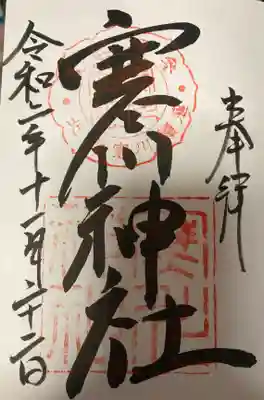 奉拝
寒川神社
令和二年十一月二十二日